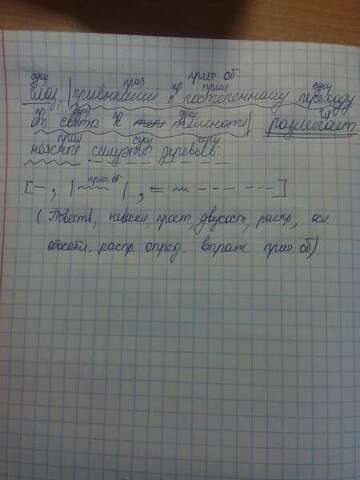 сущ прич пр прил об прил сущ
Глаз, | привыкший к постепенному переходу
пр сущ пр сущ гл
от света к темноте | различает
прил сущ сущ
неясный силуэт деревьев.
прич об
[ – , | ~~~ | , = ~ --- --- ]
( Повеств, невоскл, прост, двусост, распр, осл
обособл. распр. опред. выраж. прич об)